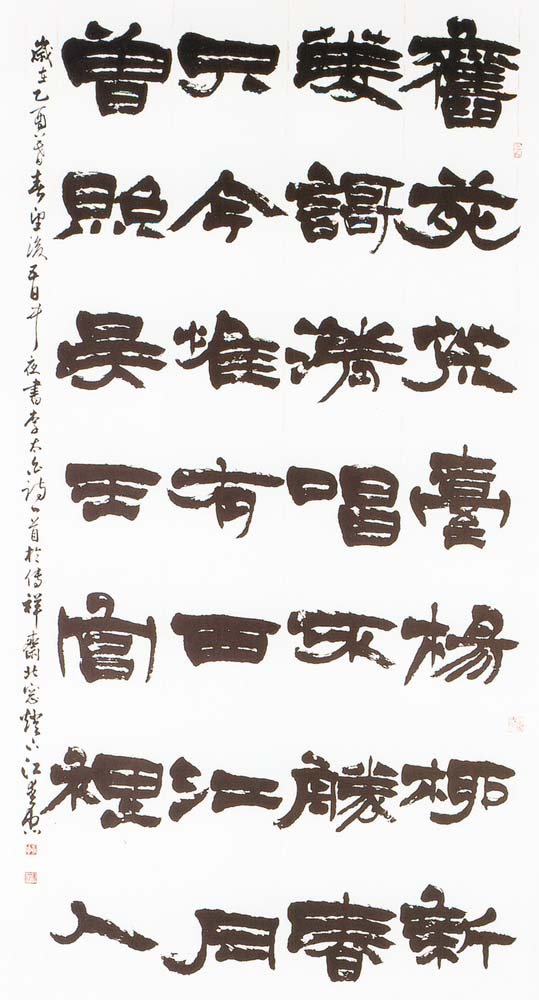 舊苑荒臺楊柳新
菱謌清唱不勝春
只今惟有西江月
曾照吳王宮裡人
歲在乙酉暮春望後五日中夜書李太白詩一首於傳祥齋北窗燈下江